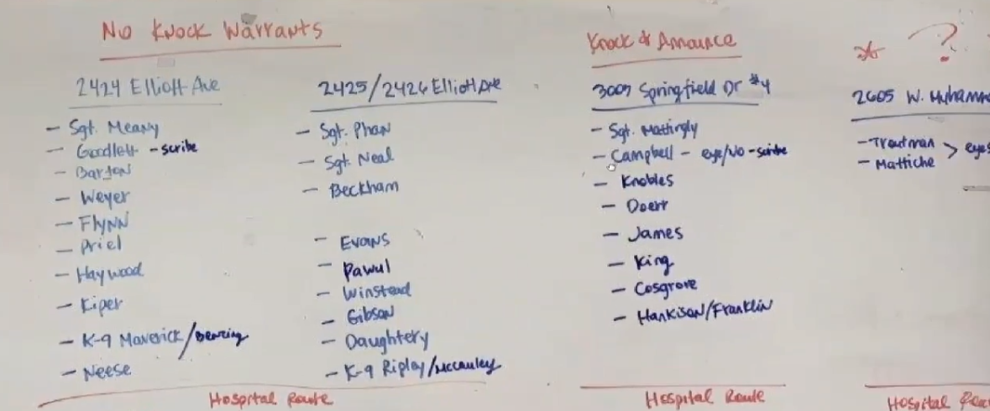 No Knock Warrants
2424 Elliott Ave
- Sgt. Meany
- Goodlett - scribe
- Barton
- Weyer
- Flynn
- Priel
- Haywood
- Kiper
- K-9 Maverick/
- Neese
Hospital Route
2425/2426 Elliott Ave
- Sgt. Phan
- Sgt. Neal
- Beckham
- Evans
- Pawul
- Winstead
- Gibson
- Daughtery
- K-9 Ripley/McCauley
Knock & Announce
3003 Springfield Dr #4
- Sgt. Mattingly
- Campbell - eye/no - scribe
- Knobles
- Doerr
- James
- King
- Cosgrove
- Hankison/Franklin
Hospital Route
* ?
2605 W. Muhamm
- Trautman > eyes
- Mattiche
Hospital Rou